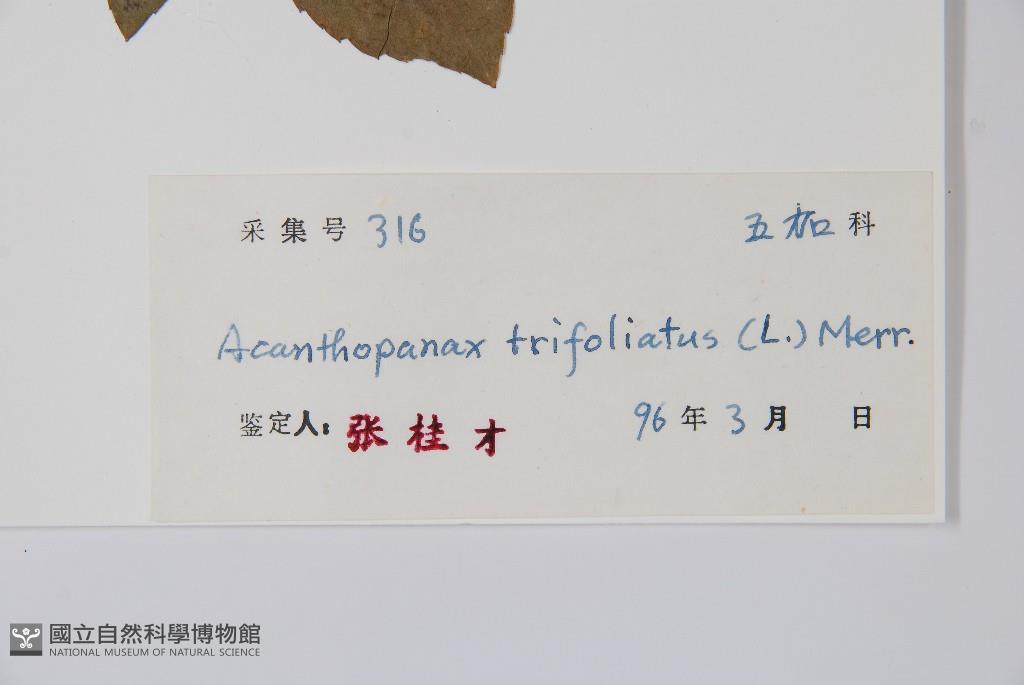 采集号 316 五加科
Acanthopanax trifoliatus (L.) Merr.
鉴定人: 张桂才 96年3月 日
國立自然科學博物館
NATIONAL MUSEUM OF NATURAL SCIENCE